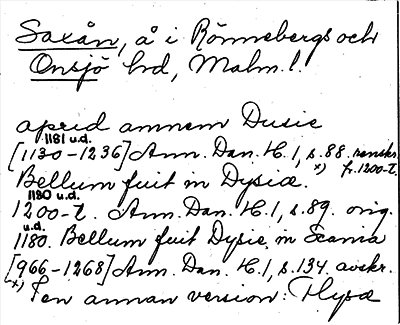 Saxån, å i Rönnebergs och
Onsjö hrd, Malm. l.
apud amnem Dusie
1181 u.d.
[1130-1236] Ann. Dan. H. 1, s. 88. renskr.
*) fr. 1200-t.
Bellum fuit in Dysiæ.
1180 u.d.
1200-t. Ann. Dan. H. 1, s. 89. orig.
u.d.
1180. Bellum fuit Dysie in Scania
[966-1268] Ann. Dan. H. 1, s. 134. avskr.
*) I en annan version: Thysæ